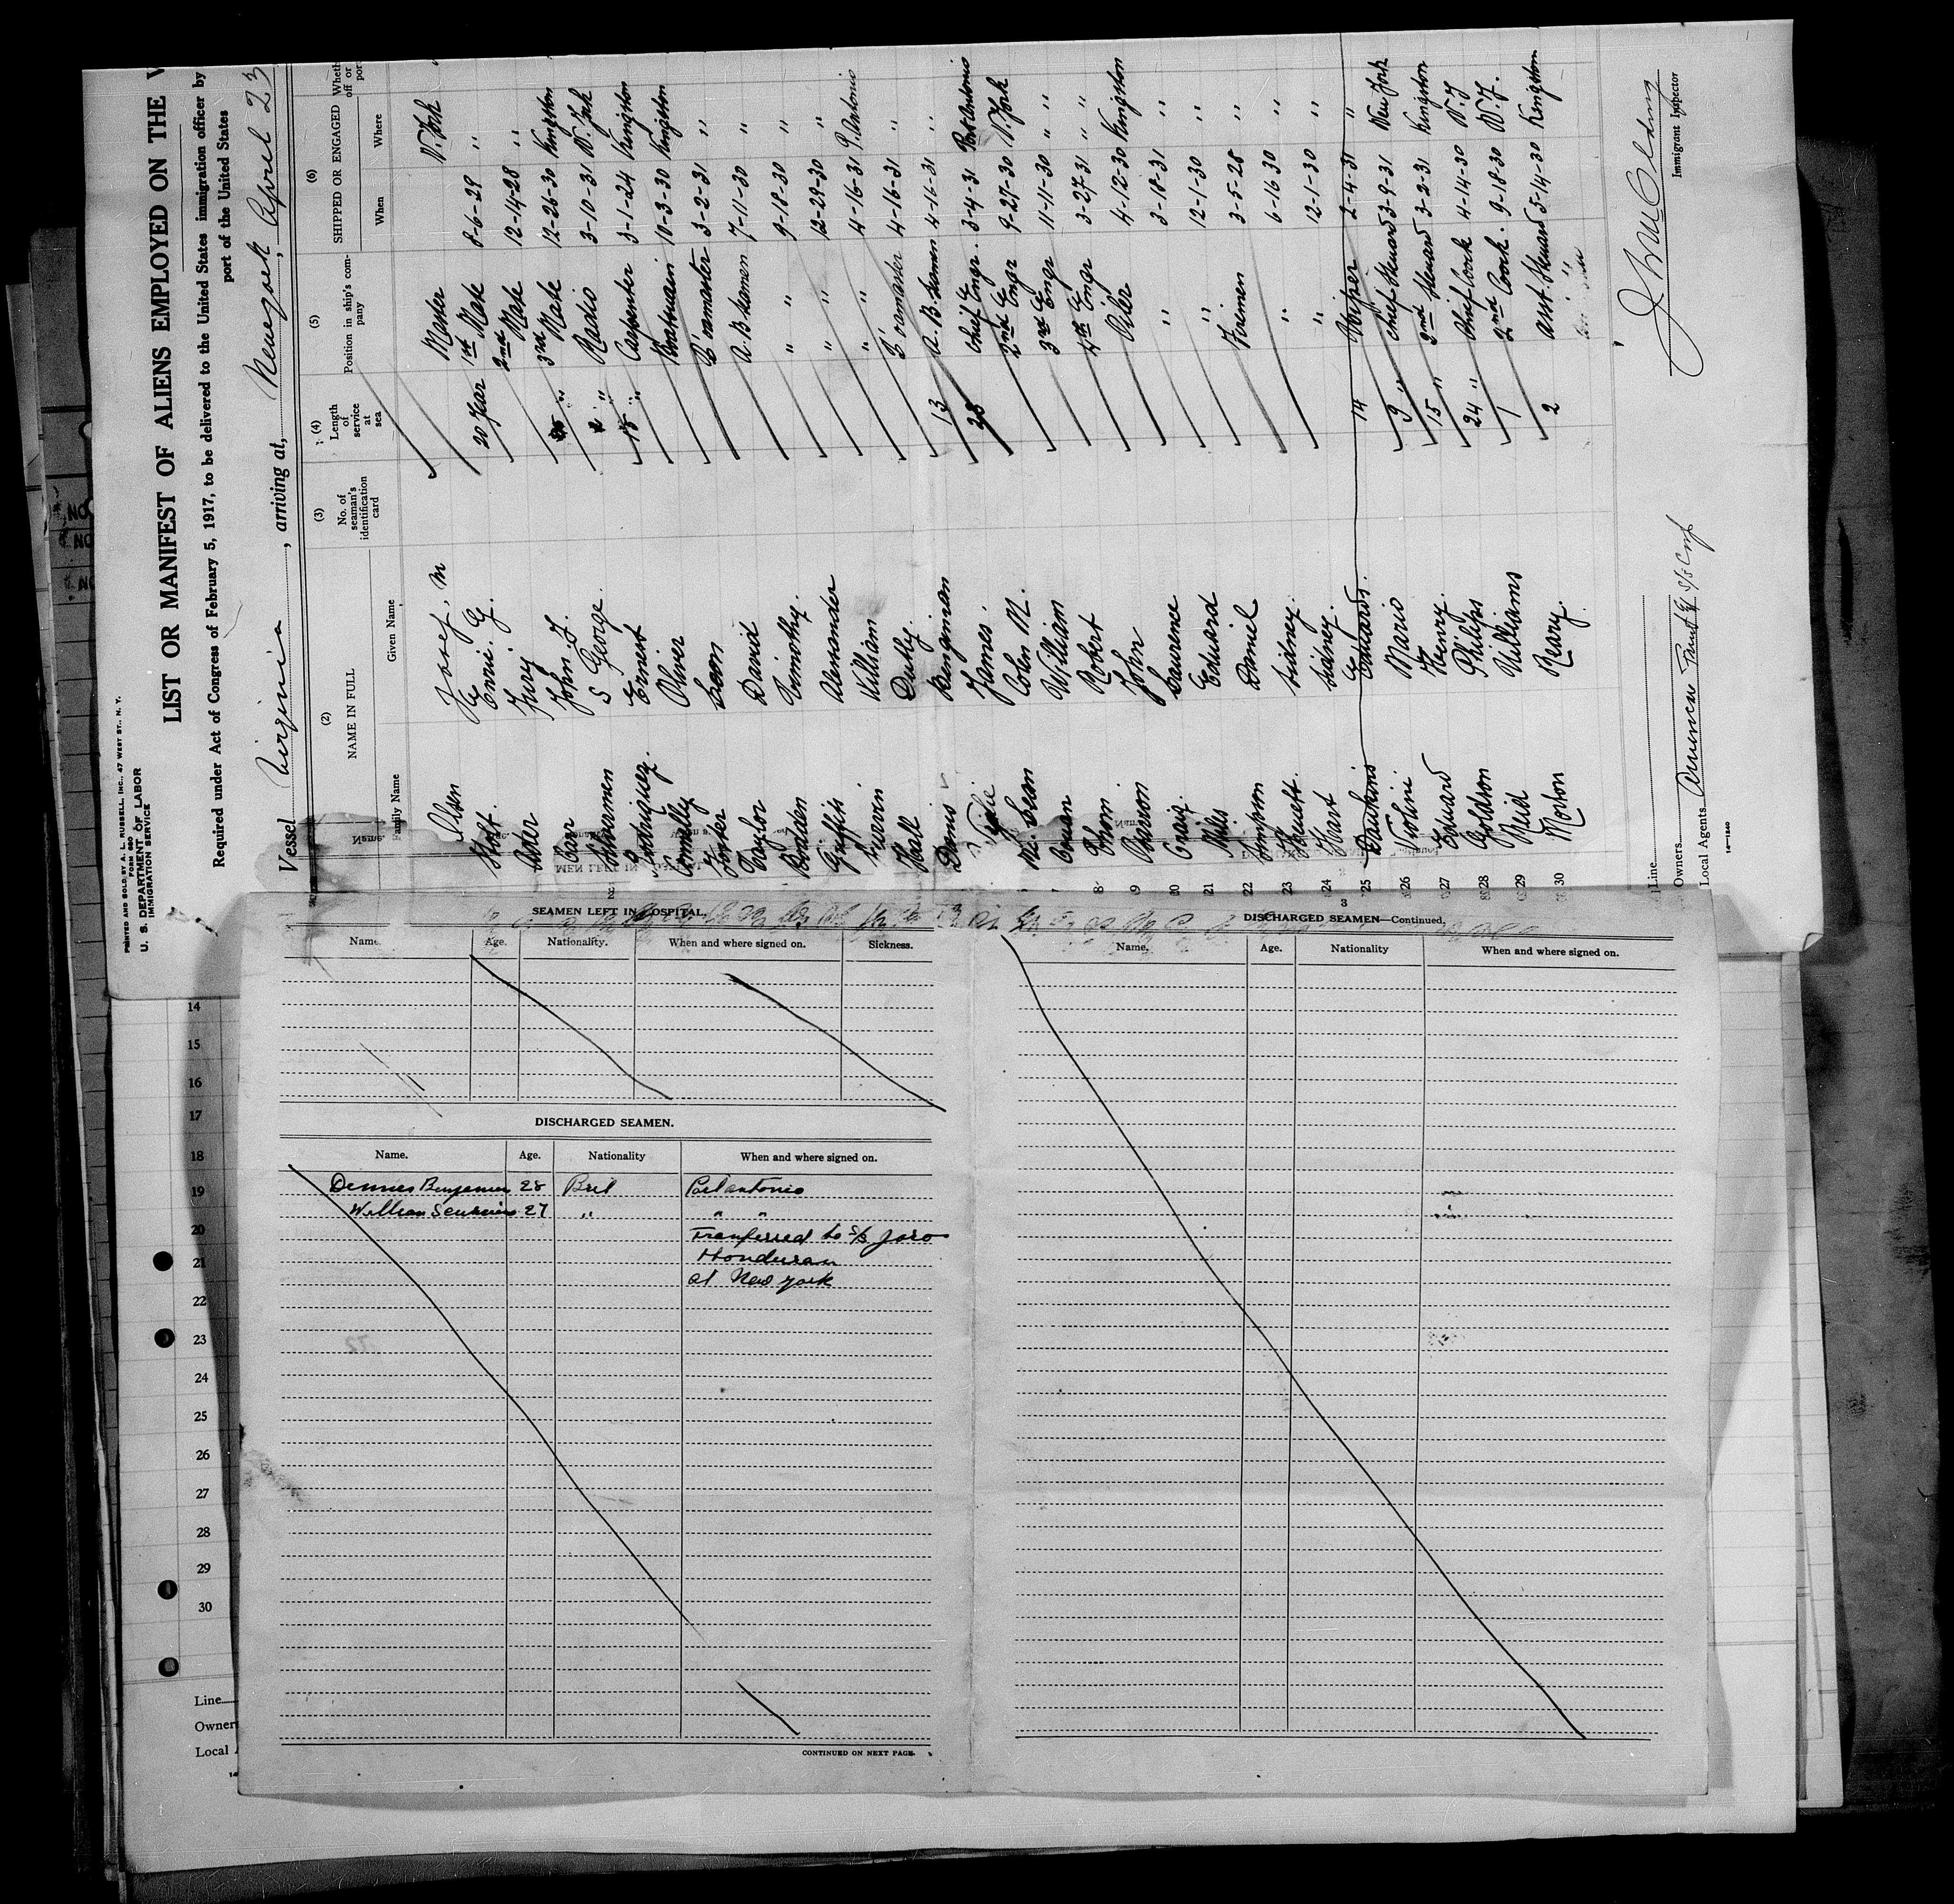 PRINTED AND SOLD BY A. L. RUSSELL, INC., 47 WEST ST., N. Y.
FORM 680
U. S. DEPARTMENT OF LABOR
IMMIGRATION SERVICE
LIST OR MANIFEST OF ALIENS EMPLOYED ON THE
Required under Act of Congress of February 5, 1917, to be delivered to the United States immigration officer by
port of the United States
Vessel Virginia, arriving at, New york, April 23
(2) (3) (4) (5) (6)
NAME IN FULL No. of seaman's identification card Length of service at sea Position in ship's company SHIPPED OR ENGAGED
Family Name Given Name When Where
Olsen Josef, M Master N. York
Hoff 20 Year 1st Mate 8-6-29 "
Jury 2nd Mate 12-14-28 "
Carr John. J. " 3rd Mate 12-26-30 Kingston
S George " Radio 3-10-31 N. York
Ernest 15 " Carpenter 3-1-24 Kingston
Connolly Oliver Boatswain 10-3-30 Kingston
Foster Leon 3-2-31 "
Taylor David A. B. Seamen 7-11-30 "
Bodden Timothy. " 9-18-30 "
Griffits Alexander " 12-29-30 "
William " 4-16-31 P. Antonio
Hall 4-16-31 "
Denis Bengiman 13 A. B. Seamen 4-16-31 "
James. 28 Chief Engr. 3-4-31 Port Antonio
Mc. Lean Colen N. 2nd Engr 9-27-30 N. York
William 3rd Engr 11-11-30 "
8 Thom Robert 4th Engr 3-27-31 "
9 John Oiler 4-12-30 Kingston
20 Craig. Laurence " 3-18-31 "
21 Mils Eduard " 12-1-30 "
22 Simpson Daniel Firemen 3-5-28 "
23 Hewett. Sidney. " 6-16-30 "
24 Hart Sidney. " 12-1-30 "
25 Dawkins Eduard. 14 Wiper 2-4-31 "
26 Mario 9 " Chief Steward 3-9-31 New York
27 Eduard Henry. 15 " 2nd Steward 3-2-31 Kingston
28 Goldson Philips 24 " Chief Cook 4-14-30 N. Y
29 Reid Williams 1 2nd Cook. 9-18-30 N. Y.
30 Morton Neary. 2 asst. Steward 5-14-30 Kingston
Line
Owners
Local Agents American Fruit & S/S Corp
14—1240
Immigrant Inspector
SEAMEN LEFT IN HOSPITAL.
Name. Age. Nationality. When and where signed on. Sickness.
DISCHARGED SEAMEN.
Name. Age. Nationality When and where signed on.
Dennes Benjamen 28 Brit Port antonio
William 27 " " "
Tranferred to S/S Joro
Honduran
at New york
CONTINUED ON NEXT PAGE.
3
DISCHARGED SEAMEN—Continued.
Name. Age. Nationality When and where signed on.
14
15
16
17
18
19
20
21
22
23
24
25
26
27
28
29
30
Line
Owner
Local